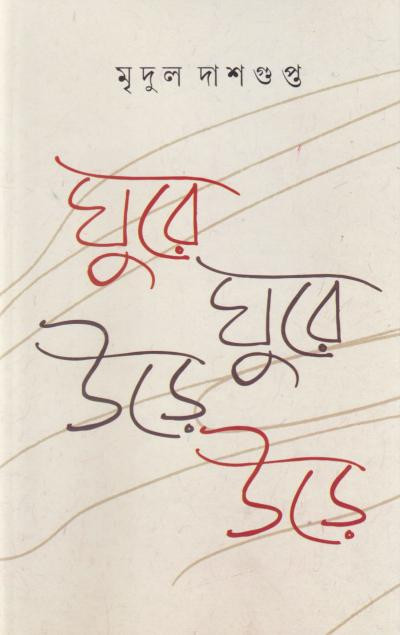 মৃদুল দাশগুপ্ত
ঘুরে
ঘুরে
উড়ে
উড়ে